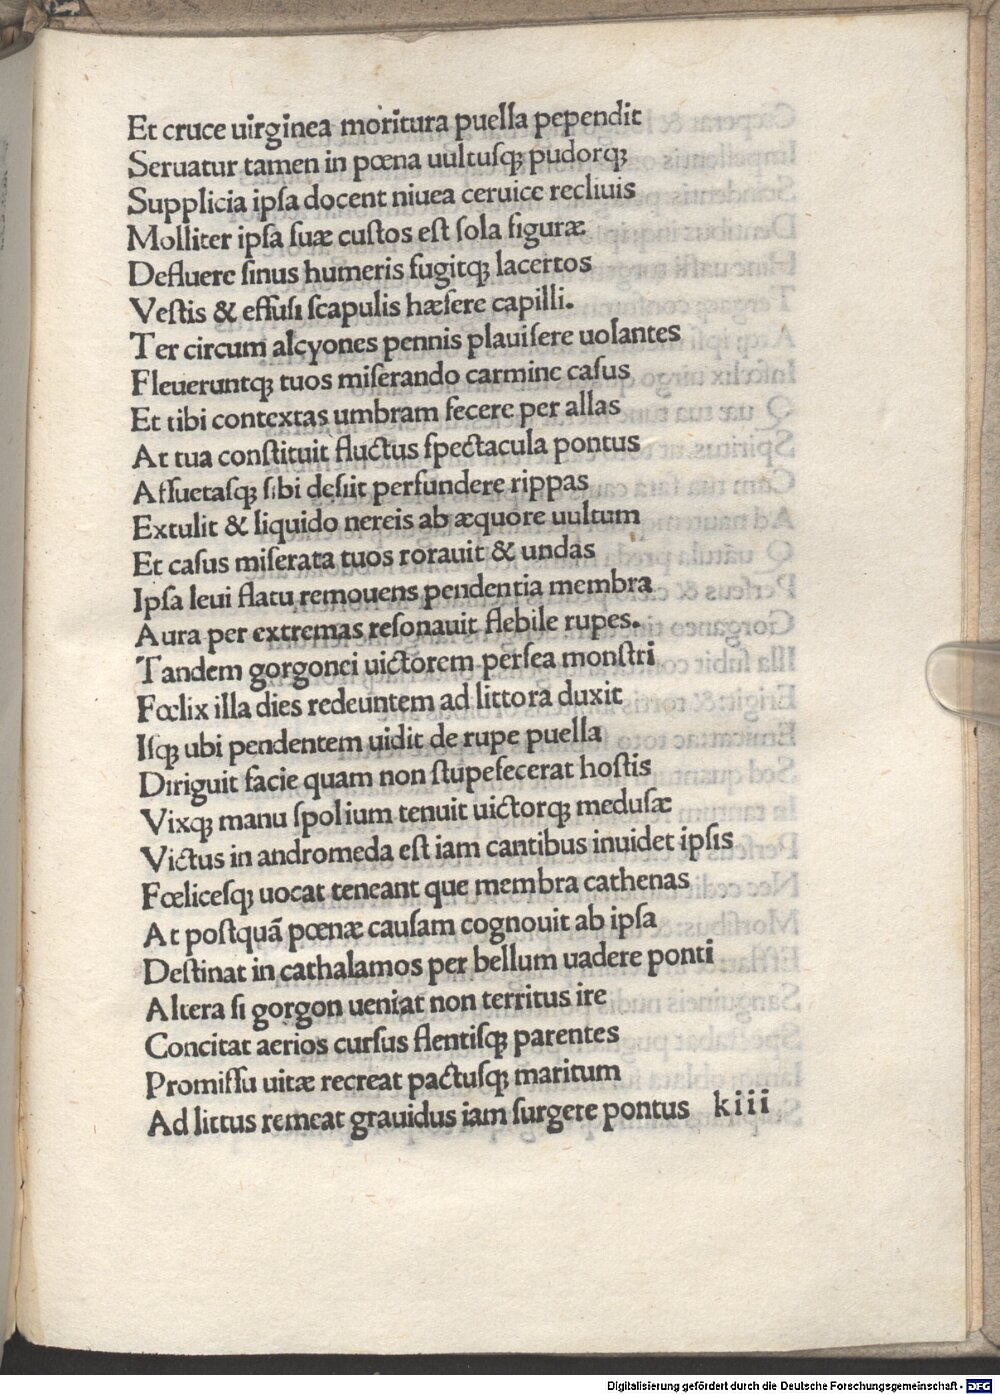 Et cruce uirginea moritura puella pependit
Seruatur tamen in pœna uultuſqꝫ pudorqꝫ
Supplicia ipſa docent niuea ceruice recliuis
Molliter ipſa ſuæ cuſtos eſt ſola figuræ
Defluere ſinus humeris fugitqꝫ lacertos
Veſtis & effuſi ſcapulis hæſere capilli.
Ter circum alcyones pennis plauiſere uolantes
Fleueruntqꝫ tuos miſerando carmine caſus
Et tibi contextas umbram fecere per allas
At tua conſtituit fluctus ſpectacula pontus
Aſſuetaſqꝫ ſibi deſiit perfundere rippas
Extulit & liquido nereis ab æquore uultum
Et caſus miſerata tuos rorauit & undas
Ipſa leui flatu remouens pendentia membra
Aura per extremas reſonauit flebile rupes.
Tandem gorgonei uictorem perſea monſtri
Fœlix illa dies redeuntem ad littora duxit
Iſqꝫ ubi pendentem uidit de rupe puella
Diriguit facie quam non ſtupefecerat hoſtis
Vixqꝫ manu ſpolium tenuit uictorqꝫ meduſæ
Victus in andromeda eſt iam cantibus inuidet ipſis
Fœliceſqꝫ uocat teneant que membra cathenas
At poſtquã pœnæ cauſam cognouit ab ipſa
Deſtinat in cathalamos per bellum uadere ponti
Altera ſi gorgon ueniat non territus ire
Concitat aerios curſus flentiſqꝫ parentes
Promiſſu uitæ recreat pactuſqꝫ maritum
Ad littus remeat grauidus iam ſurgere pontus kiii
Digitalisierung gefördert durch die Deutsche Forschungsgemeinschaft - DFG